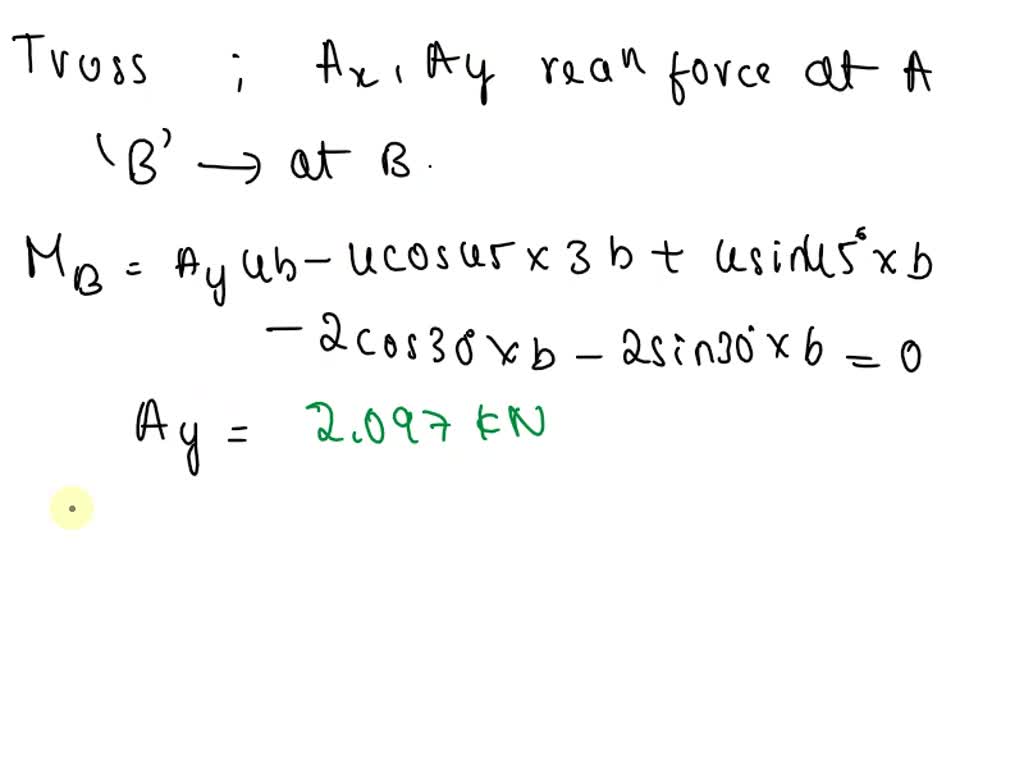 Truss ; Ax, Ay rean force at A
'B' → at B.
MB = Ay 4b - 4cos45 × 3b + 4sin45° × b
- 2cos30° × b - 2sin30° × b = 0
Ay = 2.097 kN